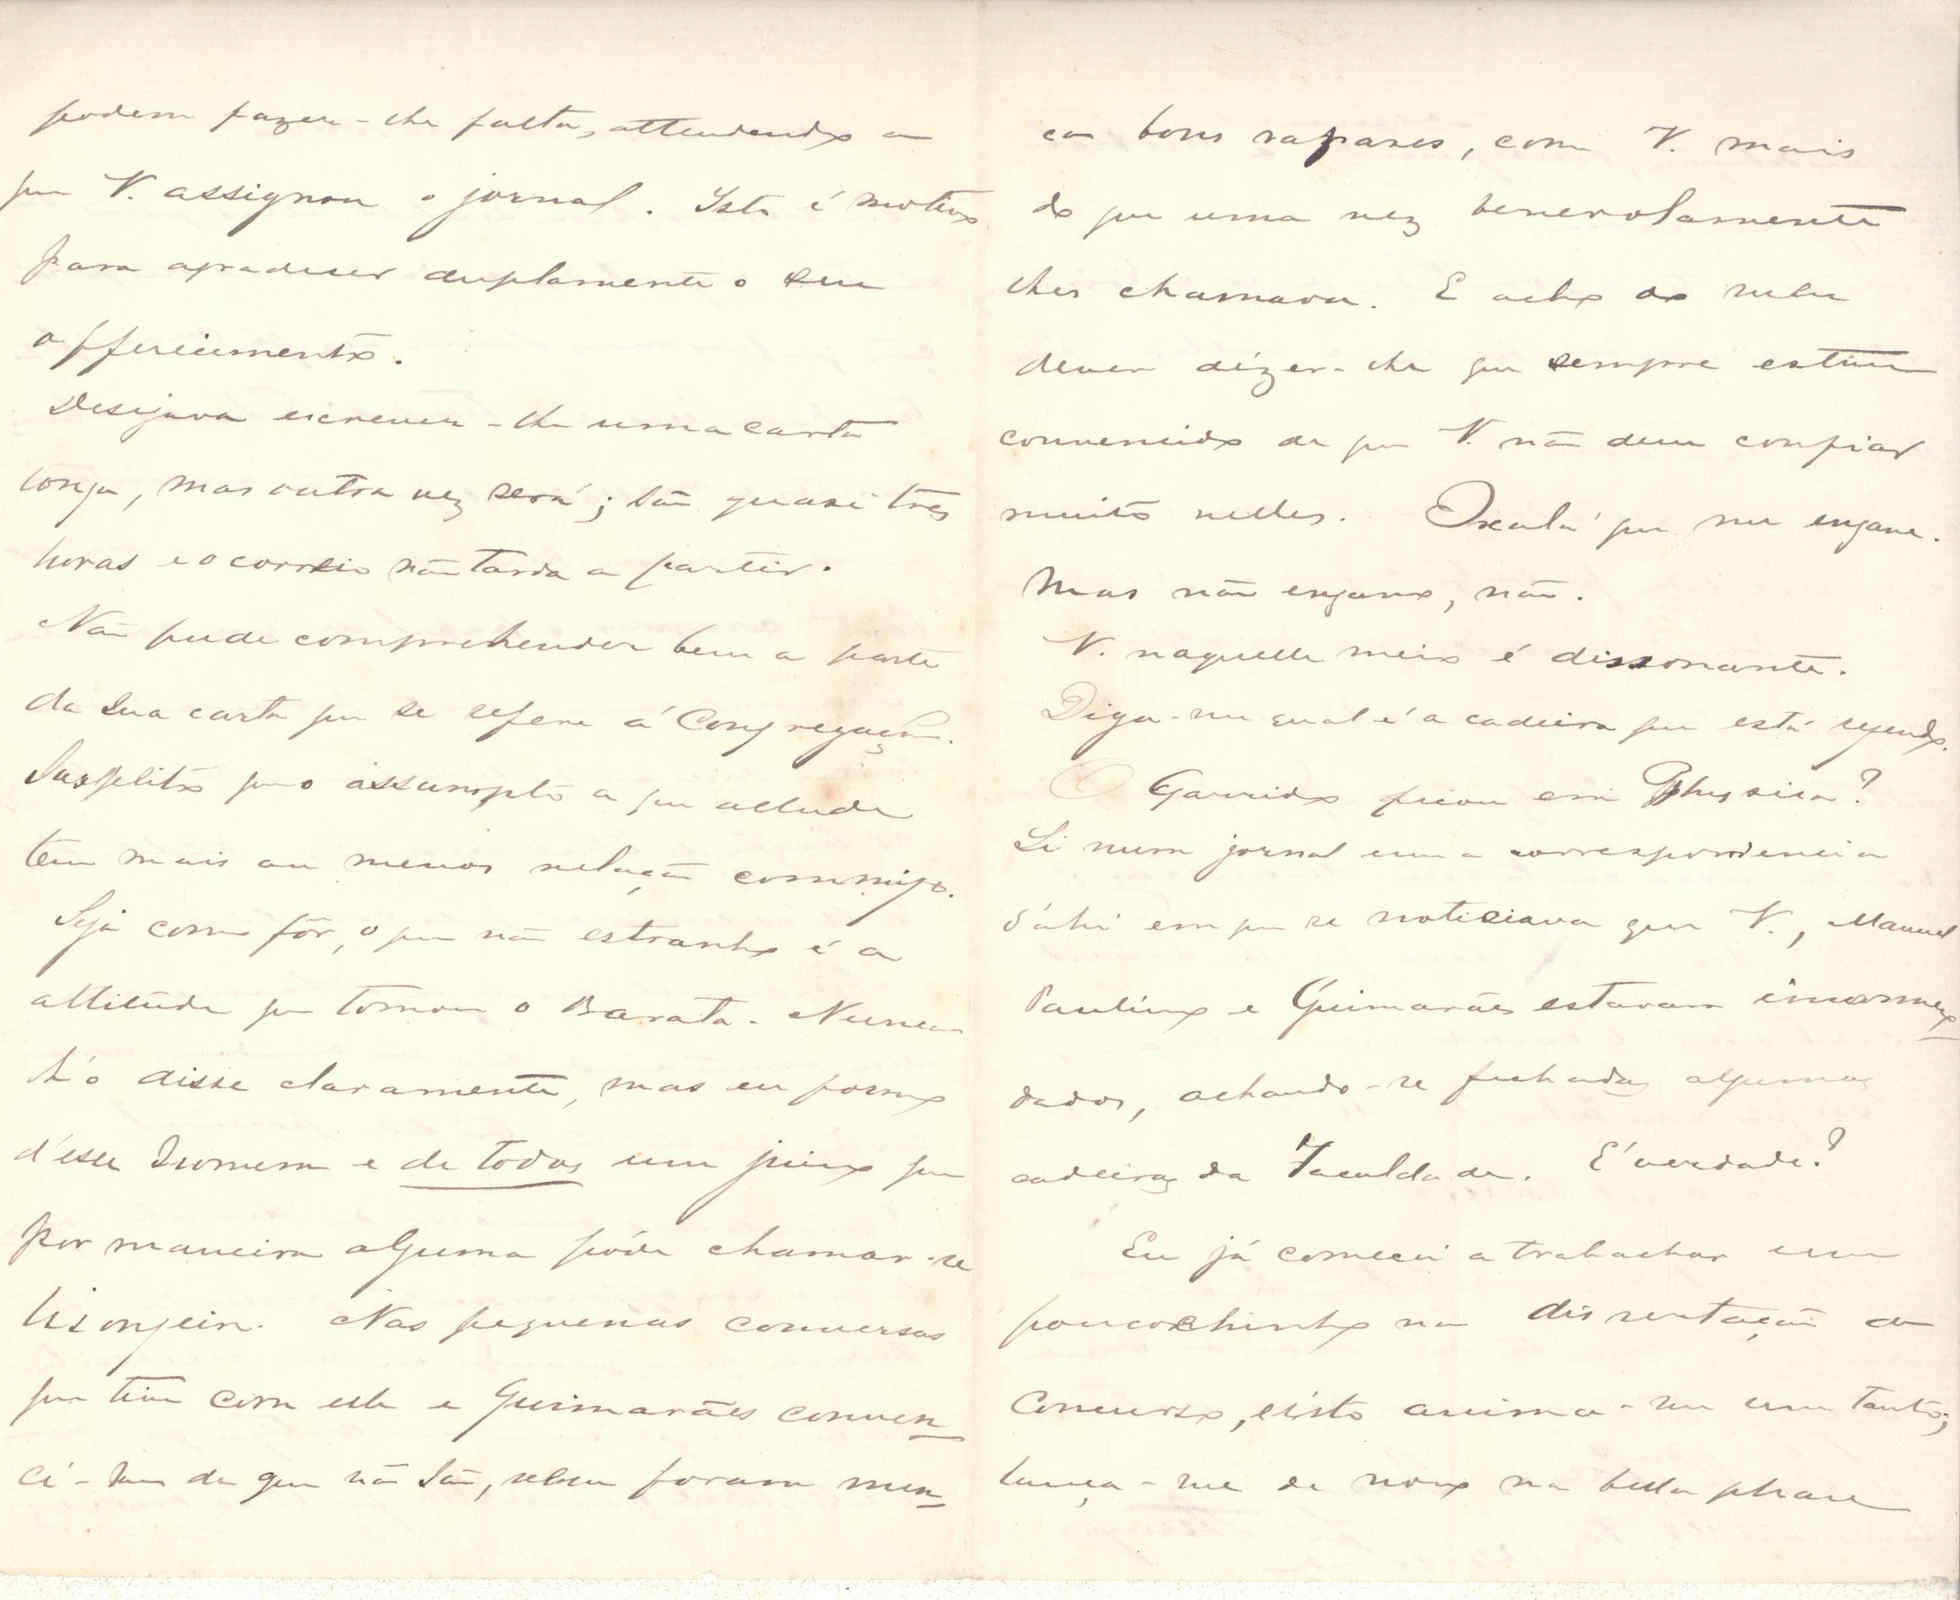 podem fazer-lhe falta, attendendo a
que V. assignou o jornal. Isto é motivo
para agradecer duplamente o seu
offerecimento.
Desejava escrever-lhe uma carta
longa, mas outra vez será; são quasi tres
horas e o correio não tarda a partir.
Não pude comprehender bem a parte
da sua carta que se refere á Congregação.
Suspeito que o assumpto a que allude
tem mais ou menos relação commigo.
Seja como fôr, o que não estranho é a
attitude que tomou o Barata. Nunca
lh'o disse claramente, mas eu formo
d'esse homem e de todos um juizo que
por maneira alguma póde chamar-se
lisongeiro. Nas pequenas conversas
que tive com elle e Guimarães conven
ci-me de que não são, nem foram nun
ca bons rapazes, como V. mais
do que uma vez benevolamente
lhes chamava. E acho do meu
dever dizer-lhe que sempre estive
convencido de que V. não deve confiar
muito nelles. Oxalá que me engane.
Mas não engano, não.
V. naquelle meio é dissonante.
Diga-me qual é a cadeira que está regendo.
O Garrido ficou em Physica?
Li num jornal uma correspondencia
d'ahi em que se noticiava que V., Manuel
Paulino e Guimarães estavam incommo
dados, achando-se fechadas algumas
cadeiras da Faculdade. É verdade?
Eu já comecei a trabalhar um
poucochinho na dissertação de
Concurso, e isto anima-me um tanto;
lança-me de novo na bella phase